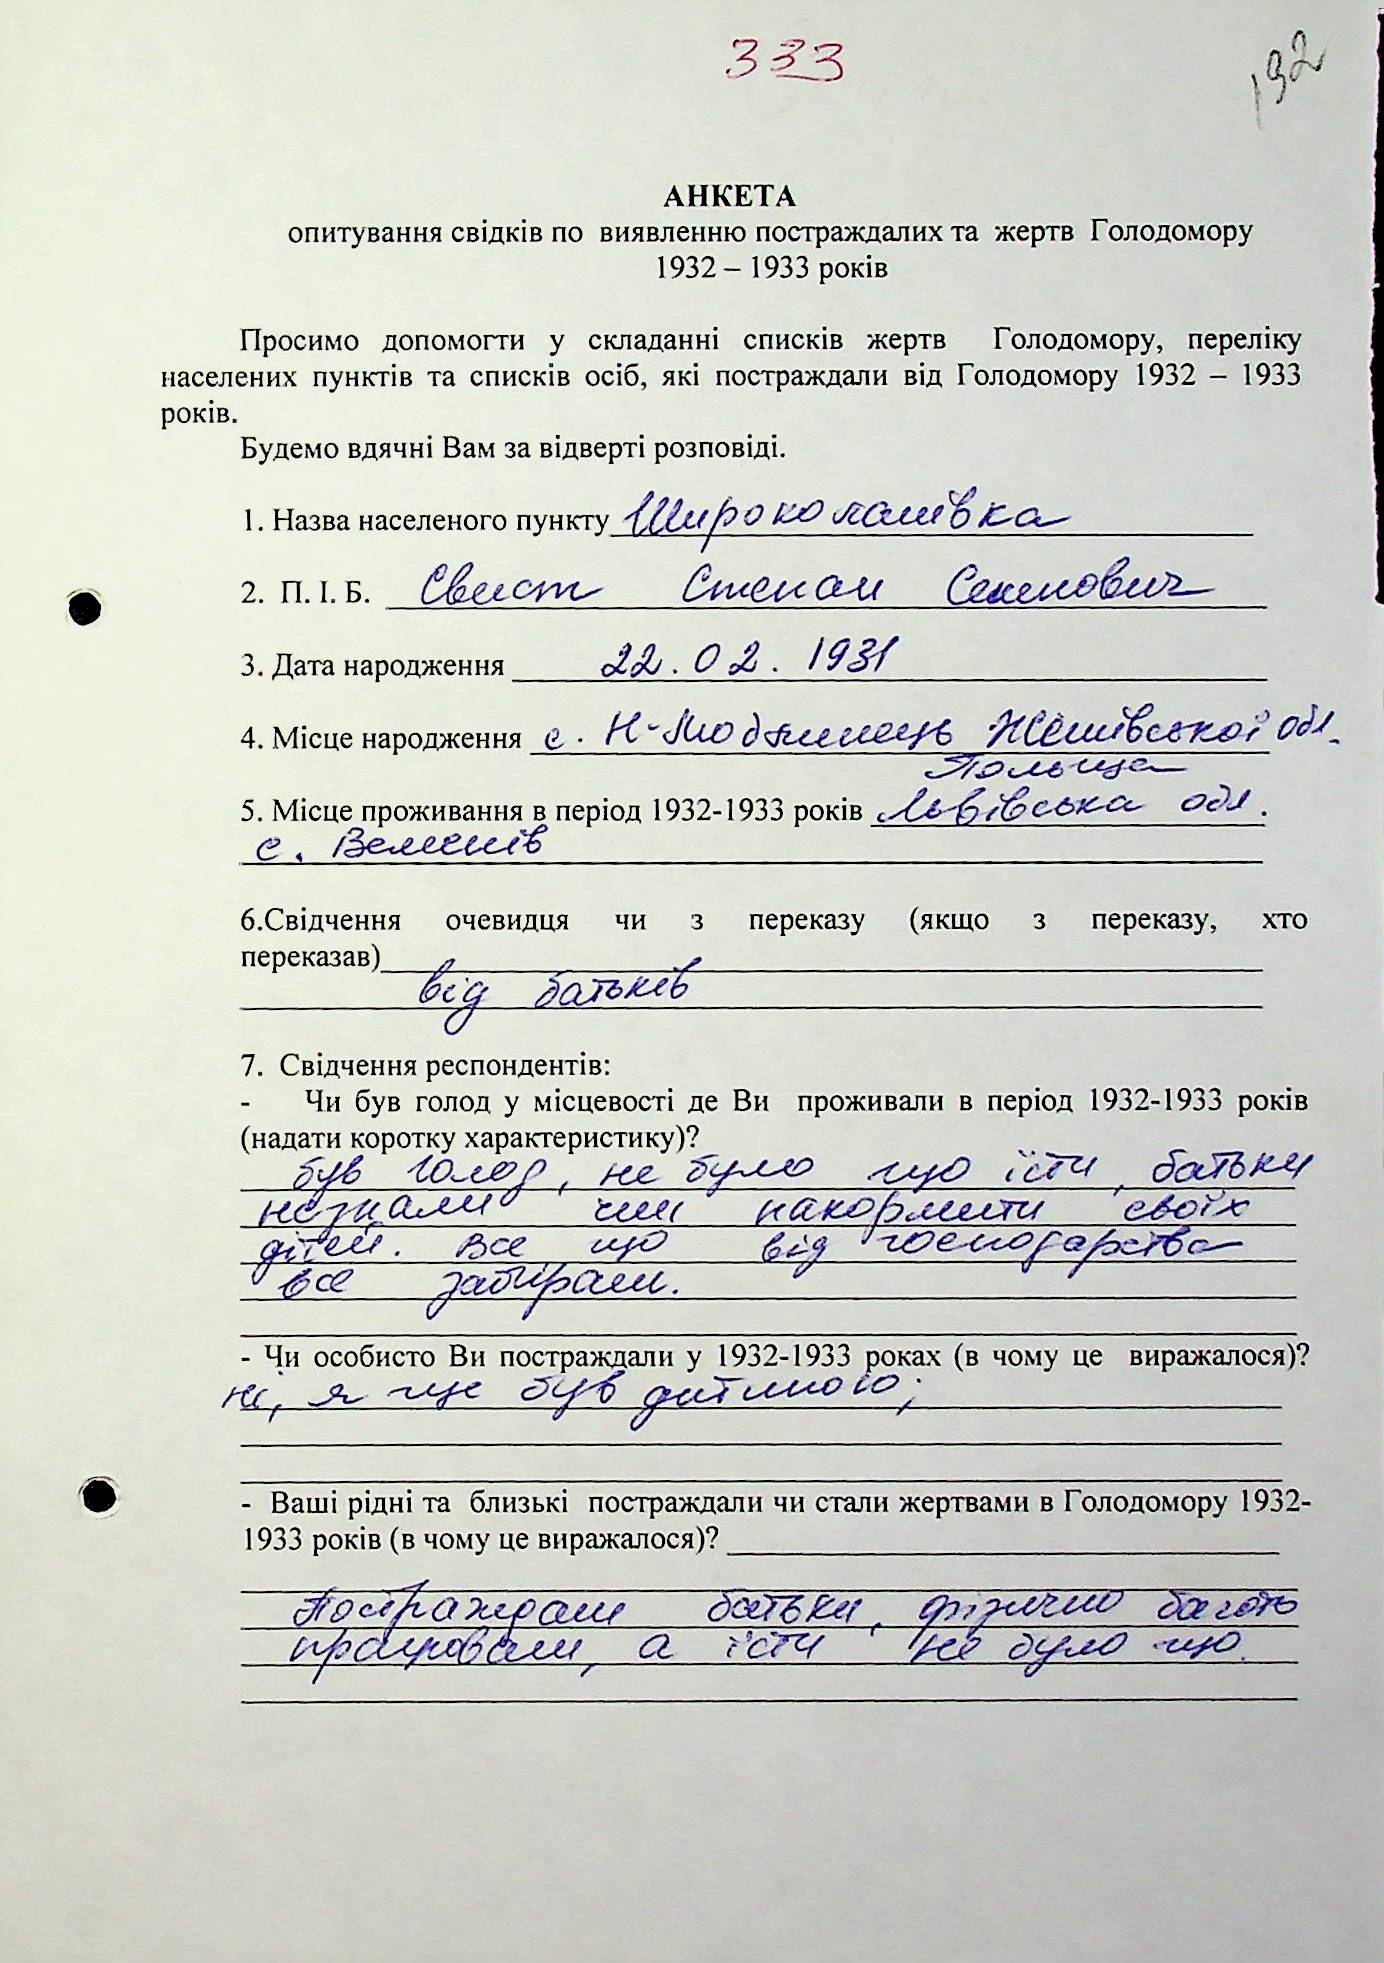 333
192
АНКЕТА
опитування свідків по виявленню постраждалих та жертв Голодомору
1932 – 1933 років
Просимо допомогти у складанні списків жертв Голодомору, переліку
населених пунктів та списків осіб, які постраждали від Голодомору 1932 – 1933
років.
Будемо вдячні Вам за відверті розповіді.
1. Назва населеного пункту Широколанівка
2. П. І. Б. Свист Степан Семенович
3. Дата народження 22.02.1931
4. Місце народження с. Жешівської обл.
Польща
5. Місце проживання в період 1932-1933 років Львівська обл.
с.
6.Свідчення очевидця чи з переказу (якщо з переказу, хто
переказав)
від батьків
7. Свідчення респондентів:
- Чи був голод у місцевості де Ви проживали в період 1932-1933 років
(надати коротку характеристику)?
був голод, не було що їсти, батьки
незнали чим накормити своїх
дітей. Все що від господарства
все забирали.
- Чи особисто Ви постраждали у 1932-1933 роках (в чому це виражалося)?
ні, я ще був дитиною;
- Ваші рідні та близькі постраждали чи стали жертвами в Голодомору 1932-
1933 років (в чому це виражалося)?
Постраждали батьки, фізично багато
працювали, а їсти не було що.